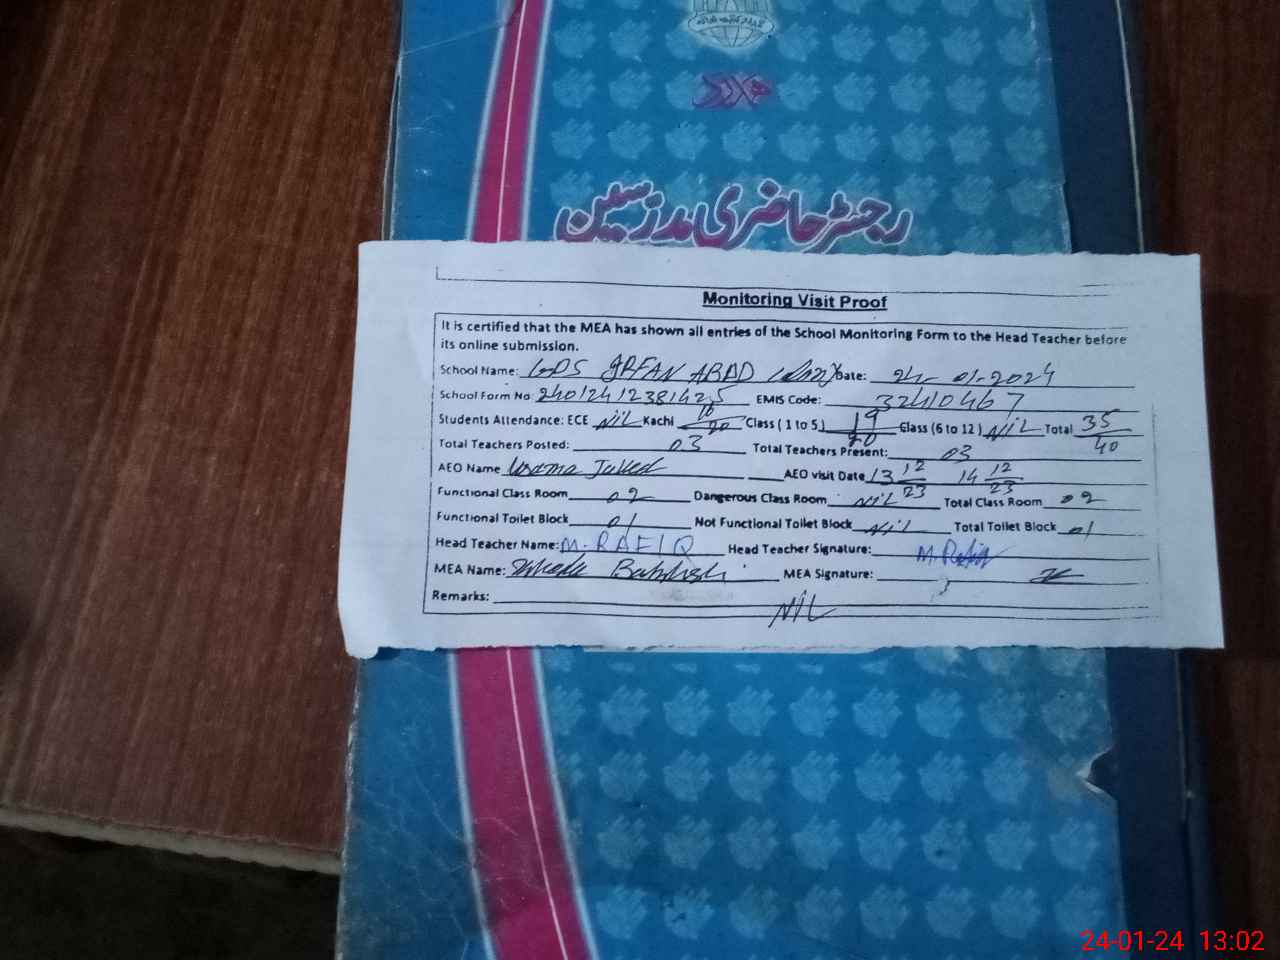 رجسٹر حاضری مدرسین
Monitoring Visit Proof
It is certified that the MEA has shown all entries of the School Monitoring Form to the Head Teacher before
its online submission.
School Name: GPS IRFAN ABAD Date: 24-01-2024
School Form No: 24012412381425 EMIS Code: 32410467
Students Attendance: ECE NIL Kachi 16/20 Class ( 1 to 5) 19/20 Class (6 to 12 ) NIL Total 35/40
Total Teachers Posted: 03 Total Teachers Present: 03
AEO Name Usama Javed AEO visit Date 13 12/23 14 12/23
Functional Class Room 02 Dangerous Class Room NIL Total Class Room 02
Functional Toilet Block 01 Not Functional Toilet Block NIL Total Toilet Block 01
Head Teacher Name: M. RAFIQ Head Teacher Signature: M. Rafiq
MEA Name: Bakhsh MEA Signature:
Remarks: NIL
24-01-24 13:02